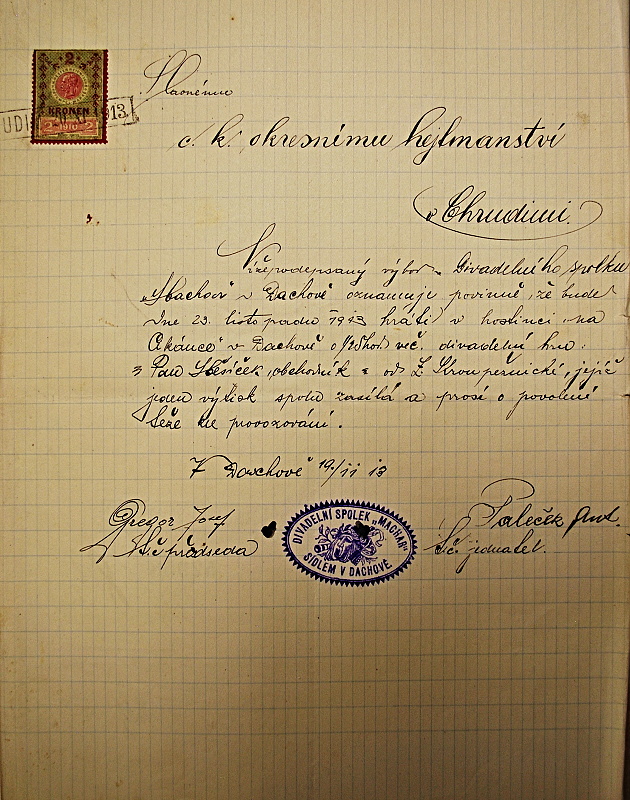 2
KRONEN
2 1910 2
UDI 1913.
Slavnému
c. k. okresnímu hejtmanství
v Chrudimi.
Nížepodepsaný výbor Divadelního spolku
„Machar" v Dachově oznamuje povinně, že bude
dne 23. listopadu 1913 hráti v hostinci „na
Cikánce" v Dachově o hod. več. divadelní hru:
Pan obchodník od L. Stroupežnické, jejíž
jeden výtisk spolu zasílá a prosí o povolení
téže ku provozování.
V Dachově 19/11 13
Gregor Josef
t. č. předseda
DIVADELNÍ SPOLEK „MACHAR"
SÍDLEM V DACHOVĚ
Paleček Ant.
t. č. jednatel.